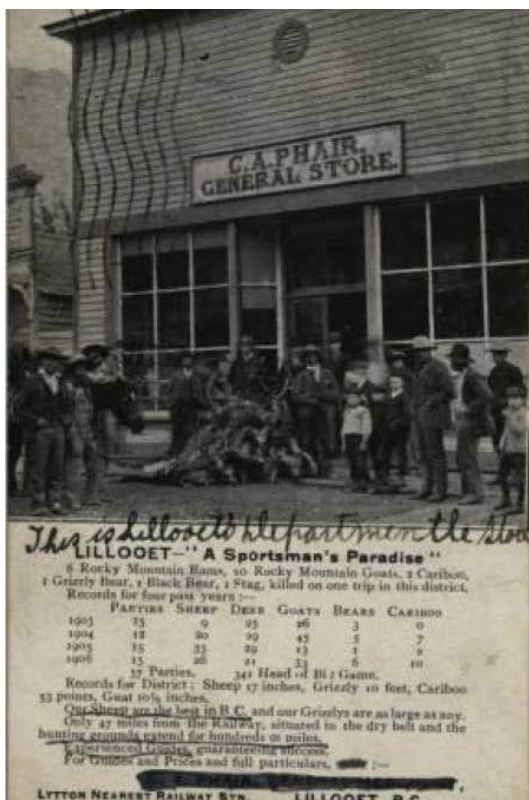 C.A. PHAIR.
GENERAL STORE.
This is Lillooet's Department the Store
LILLOOET—"A Sportsman's Paradise"
6 Rocky Mountain Rams, 10 Rocky Mountain Goats, 2 Caribou,
1 Grizzly Bear, 1 Black Bear, 1 Stag, killed on one trip in this district.
Records for four past years :—
PARTIES SHEEP DEER GOATS BEARS CARIBOO
1903 15 9 25 26 3 0
1904 12 20 19 45 5 7
1905 15 33 29 13 1 2
1906 15 26 21 33 6 10
57 Parties. 341 Head of Big Game.
Records for District : Sheep 17 inches, Grizzly 10 feet, Cariboo
53 points, Goat 10½ inches.
Our Sheep are the best in B.C. and our Grizzlys are as large as any.
Only 47 miles from the Railway, situated in the dry belt and the
hunting grounds extend for hundreds of miles.
Experienced Guides, guaranteeing success.
For Guides and Prices and full particulars, :—
LYTTON NEAREST RAILWAY STN. LILLOOET, B.C.